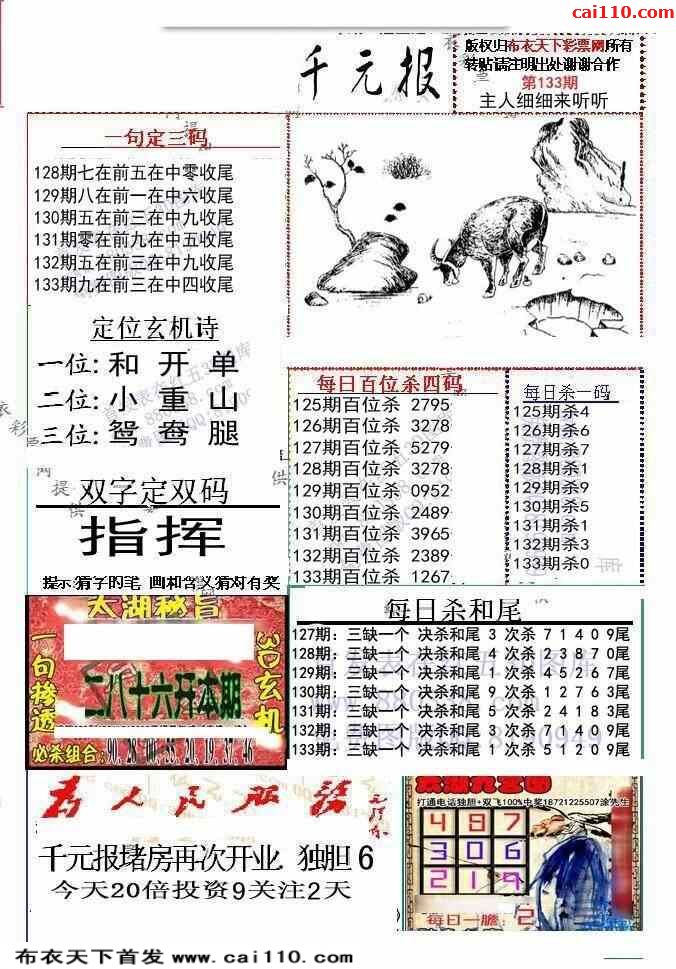 cai110.com
千元报
版权归布衣天下彩票网所有
转贴请注明出处谢谢合作
第133期
主人细细来听听
一句定三码
128期七在前五在中零收尾
129期八在前一在中六收尾
130期五在前三在中九收尾
131期零在前九在中五收尾
132期五在前三在中九收尾
133期九在前三在中四收尾
定位玄机诗
一位: 和 开 单
二位: 小 重 山
三位: 鸳 鸯 腿
双字定双码
指挥
提示:猜字的笔 画和含义猜对有奖
每日百位杀四码
125期百位杀 2795
126期百位杀 3278
127期百位杀 5279
128期百位杀 3278
129期百位杀 0952
130期百位杀 2489
131期百位杀 3965
132期百位杀 2389
133期百位杀 1267
每日杀一码
125期杀4
126期杀6
127期杀7
128期杀1
129期杀9
130期杀5
131期杀1
132期杀3
133期杀0
太湖秘旨
一句掺透
3D玄机
二八十六开本期
必杀组合:90,28,00,55,20,19,37,46
每日杀和尾
127期: 三缺一个 决杀和尾 3 次杀 7 1 4 0 9尾
128期: 三缺一个 决杀和尾 4 次杀 2 3 8 7 0尾
129期: 三缺一个 决杀和尾 1 次杀 4 5 2 6 7尾
130期: 三缺一个 决杀和尾 9 次杀 1 2 7 6 3尾
131期: 三缺一个 决杀和尾 5 次杀 2 4 1 8 3尾
132期: 三缺一个 决杀和尾 3 次杀 7 1 4 0 9尾
133期: 三缺一个 决杀和尾 1 次杀 5 1 2 0 9尾
为人民服务
千元报堵房再次开业. 独胆 6
今天20倍投资9关注2天
打通电话独胆+双飞100%中奖18721225507涂先生
4 9 7
3 0 6
2 1 9
每日一胆: 2
布衣天下首发 www.cai110.com